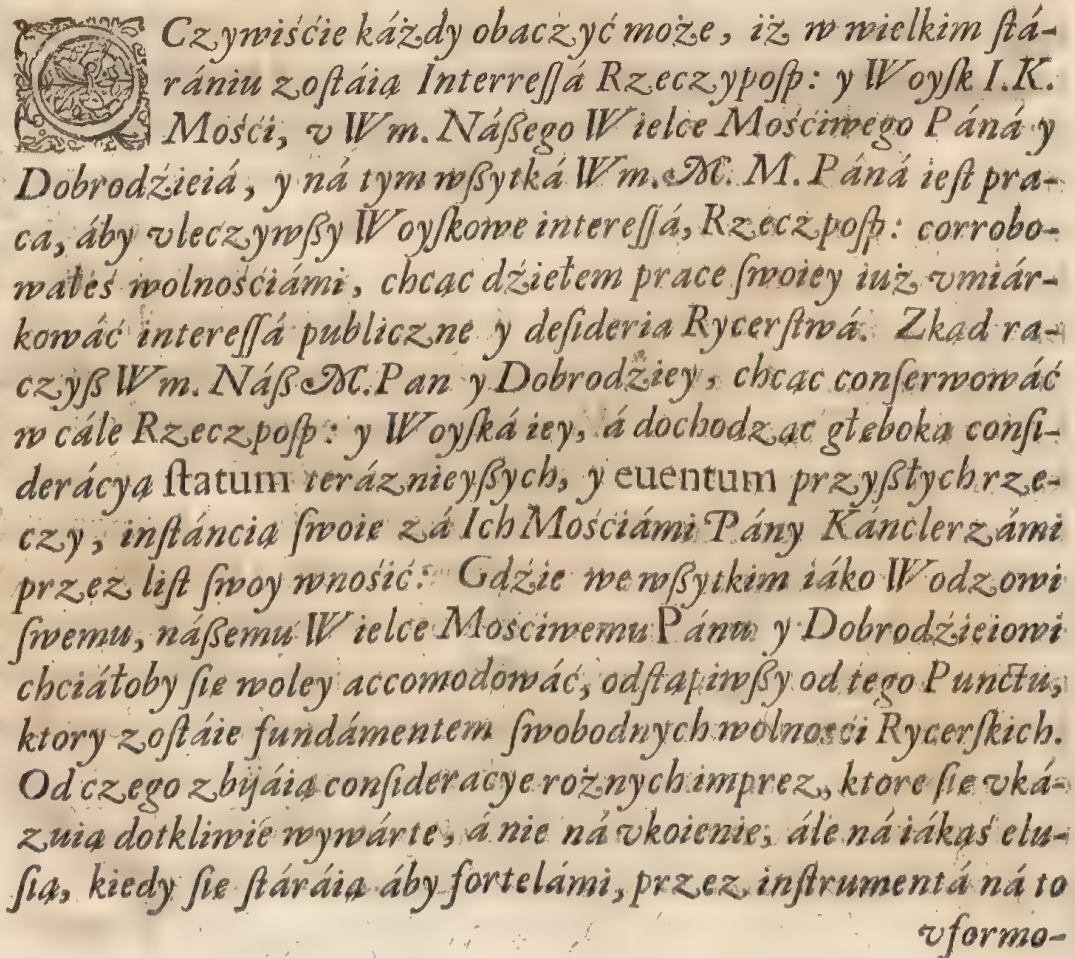 OCzywiśćie káżdy obaczyć może, iż w wielkim ſtá-
rániu zoſtáią Interreſſá Rzeczypoſp: y Woyſk I.K.
Mośći, v Wm. Náßego Wielce Mośćiwego Páná y
Dobrodźieiá, y ná tym wßytká Wm. M. M. Páná ieſt pra-
ca, áby vleczywßy Woyſkowe intereſſá, Rzeczpoſp: corrobo-
wałeś wolnośćiámi, chcąc dźiełem prace ſwoiey iuż vmiár-
kowáć intereſſá publiczne y deſideria Rycerſtwá. Zkąd ra-
czyß Wm. Náß M. Pan y Dobrodźiey, chcąc conſerwowáć
w cále Rzeczpoſp: y Woyſká iey, á dochodząc głęboką conſi-
derácyą ſtatum teráznieyßych, y euentum przyßłych rze-
czy, inſtáncią ſwoię zá Ich Mośćiámi Pány Kánclerzámi
przez liſt ſwoy wnośić: Gdźie we wßytkim iáko Wodzowi
ſwemu, náßemu Wielce Mośćiwemu Pánu y Dobrodźieiowi
chciáłoby ſię woley accomodowáć, odſtąpiwßy od tego Punctu,
ktory zoſtáie fundámentem ſwobodnych wolnośći Rycerſkich.
Od czego zbijáią conſideracye rożnych imprez, ktore ſię vká-
zuią dotkliwie wywárte, á nie ná vkoienie, ále ná iákąś elu-
ſią, kiedy ſię ſtáráią áby fortelámi, przez inſtrumentá ná to
vformo-